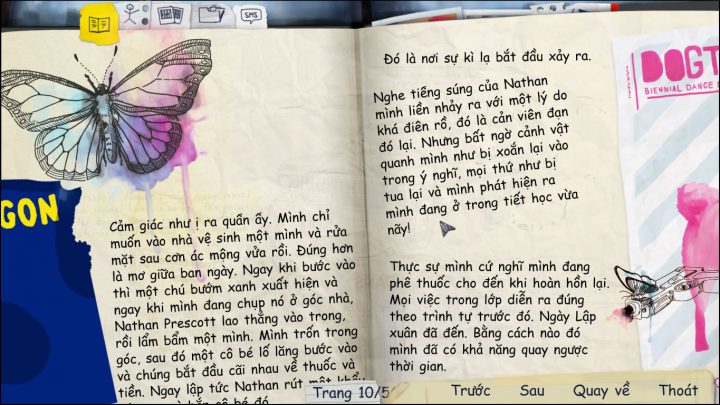 SMS
GON
Cảm giác như ị ra quần ấy. Mình chỉ
muốn vào nhà vệ sinh một mình và rửa
mặt sau cơn ác mộng vừa rồi. Đúng hơn
là mơ giữa ban ngày. Ngay khi bước vào
thì một chú bướm xanh xuất hiện và
ngay khi mình đang chụp nó ở góc nhà,
Nathan Prescott lao thẳng vào trong,
rồi lẩm bẩm một mình. Mình trốn trong
góc, sau đó một cô bé lố lăng bước vào
và chúng bắt đầu cãi nhau về thuốc và
tiền. Ngay lập tức Nathan rút một khẩu
Đó là nơi sự kì lạ bắt đầu xảy ra.
Nghe tiếng súng của Nathan
mình liền nhảy ra với một lý do
khá điên rồ, đó là cản viên đạn
đó lại. Nhưng bất ngờ cảnh vật
quanh mình như bị xoắn lại vào
trong ý nghĩ, mọi thứ như bị
tua lại và mình phát hiện ra
mình đang ở trong tiết học vừa
nãy!
Thực sự mình cứ nghĩ mình đang
phê thuốc cho đến khi hoàn hồn lại.
Mọi việc trong lớp diễn ra đúng
theo trình tự trước đó. Ngày Lập
xuân đã đến. Bằng cách nào đó
mình đã có khả năng quay ngược
thời gian.
DOGT
BIENNIAL DANCE
Trang 10/5
Trước Sau Quay về Thoát